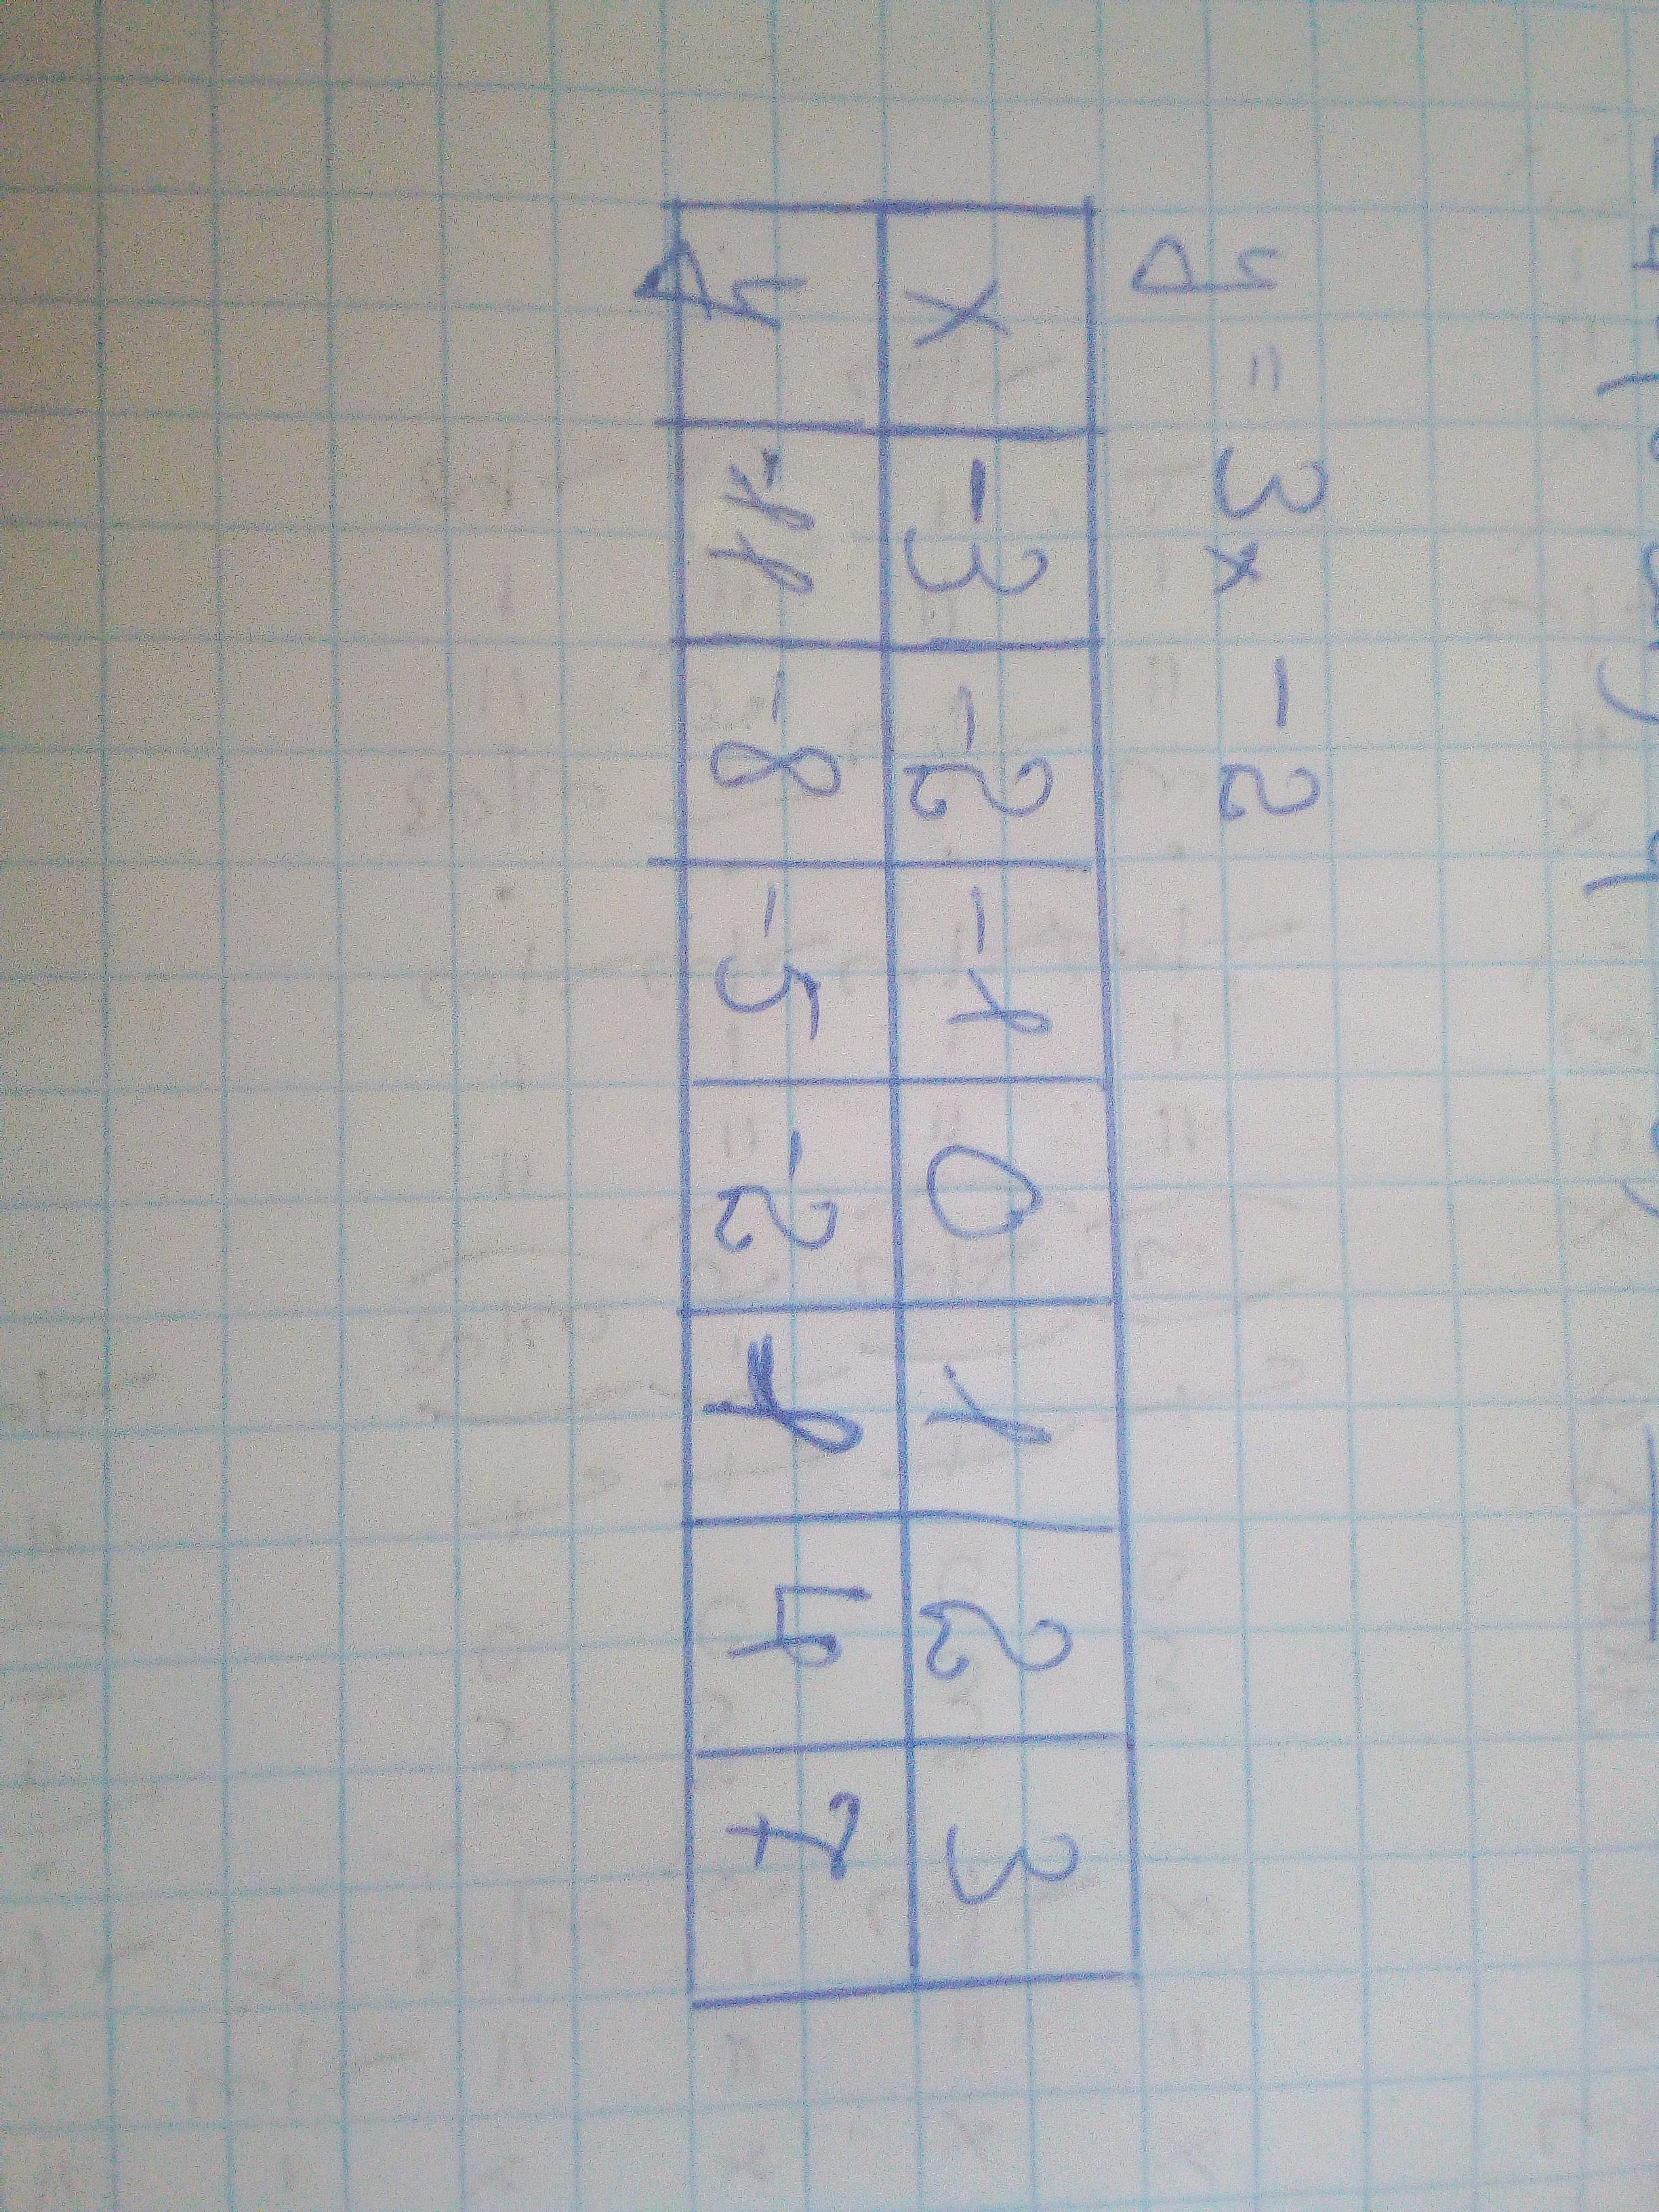 y = 3x - 2
x -3 -2 -1 0 1 2 3
y -11 -8 -5 -2 1 4 7